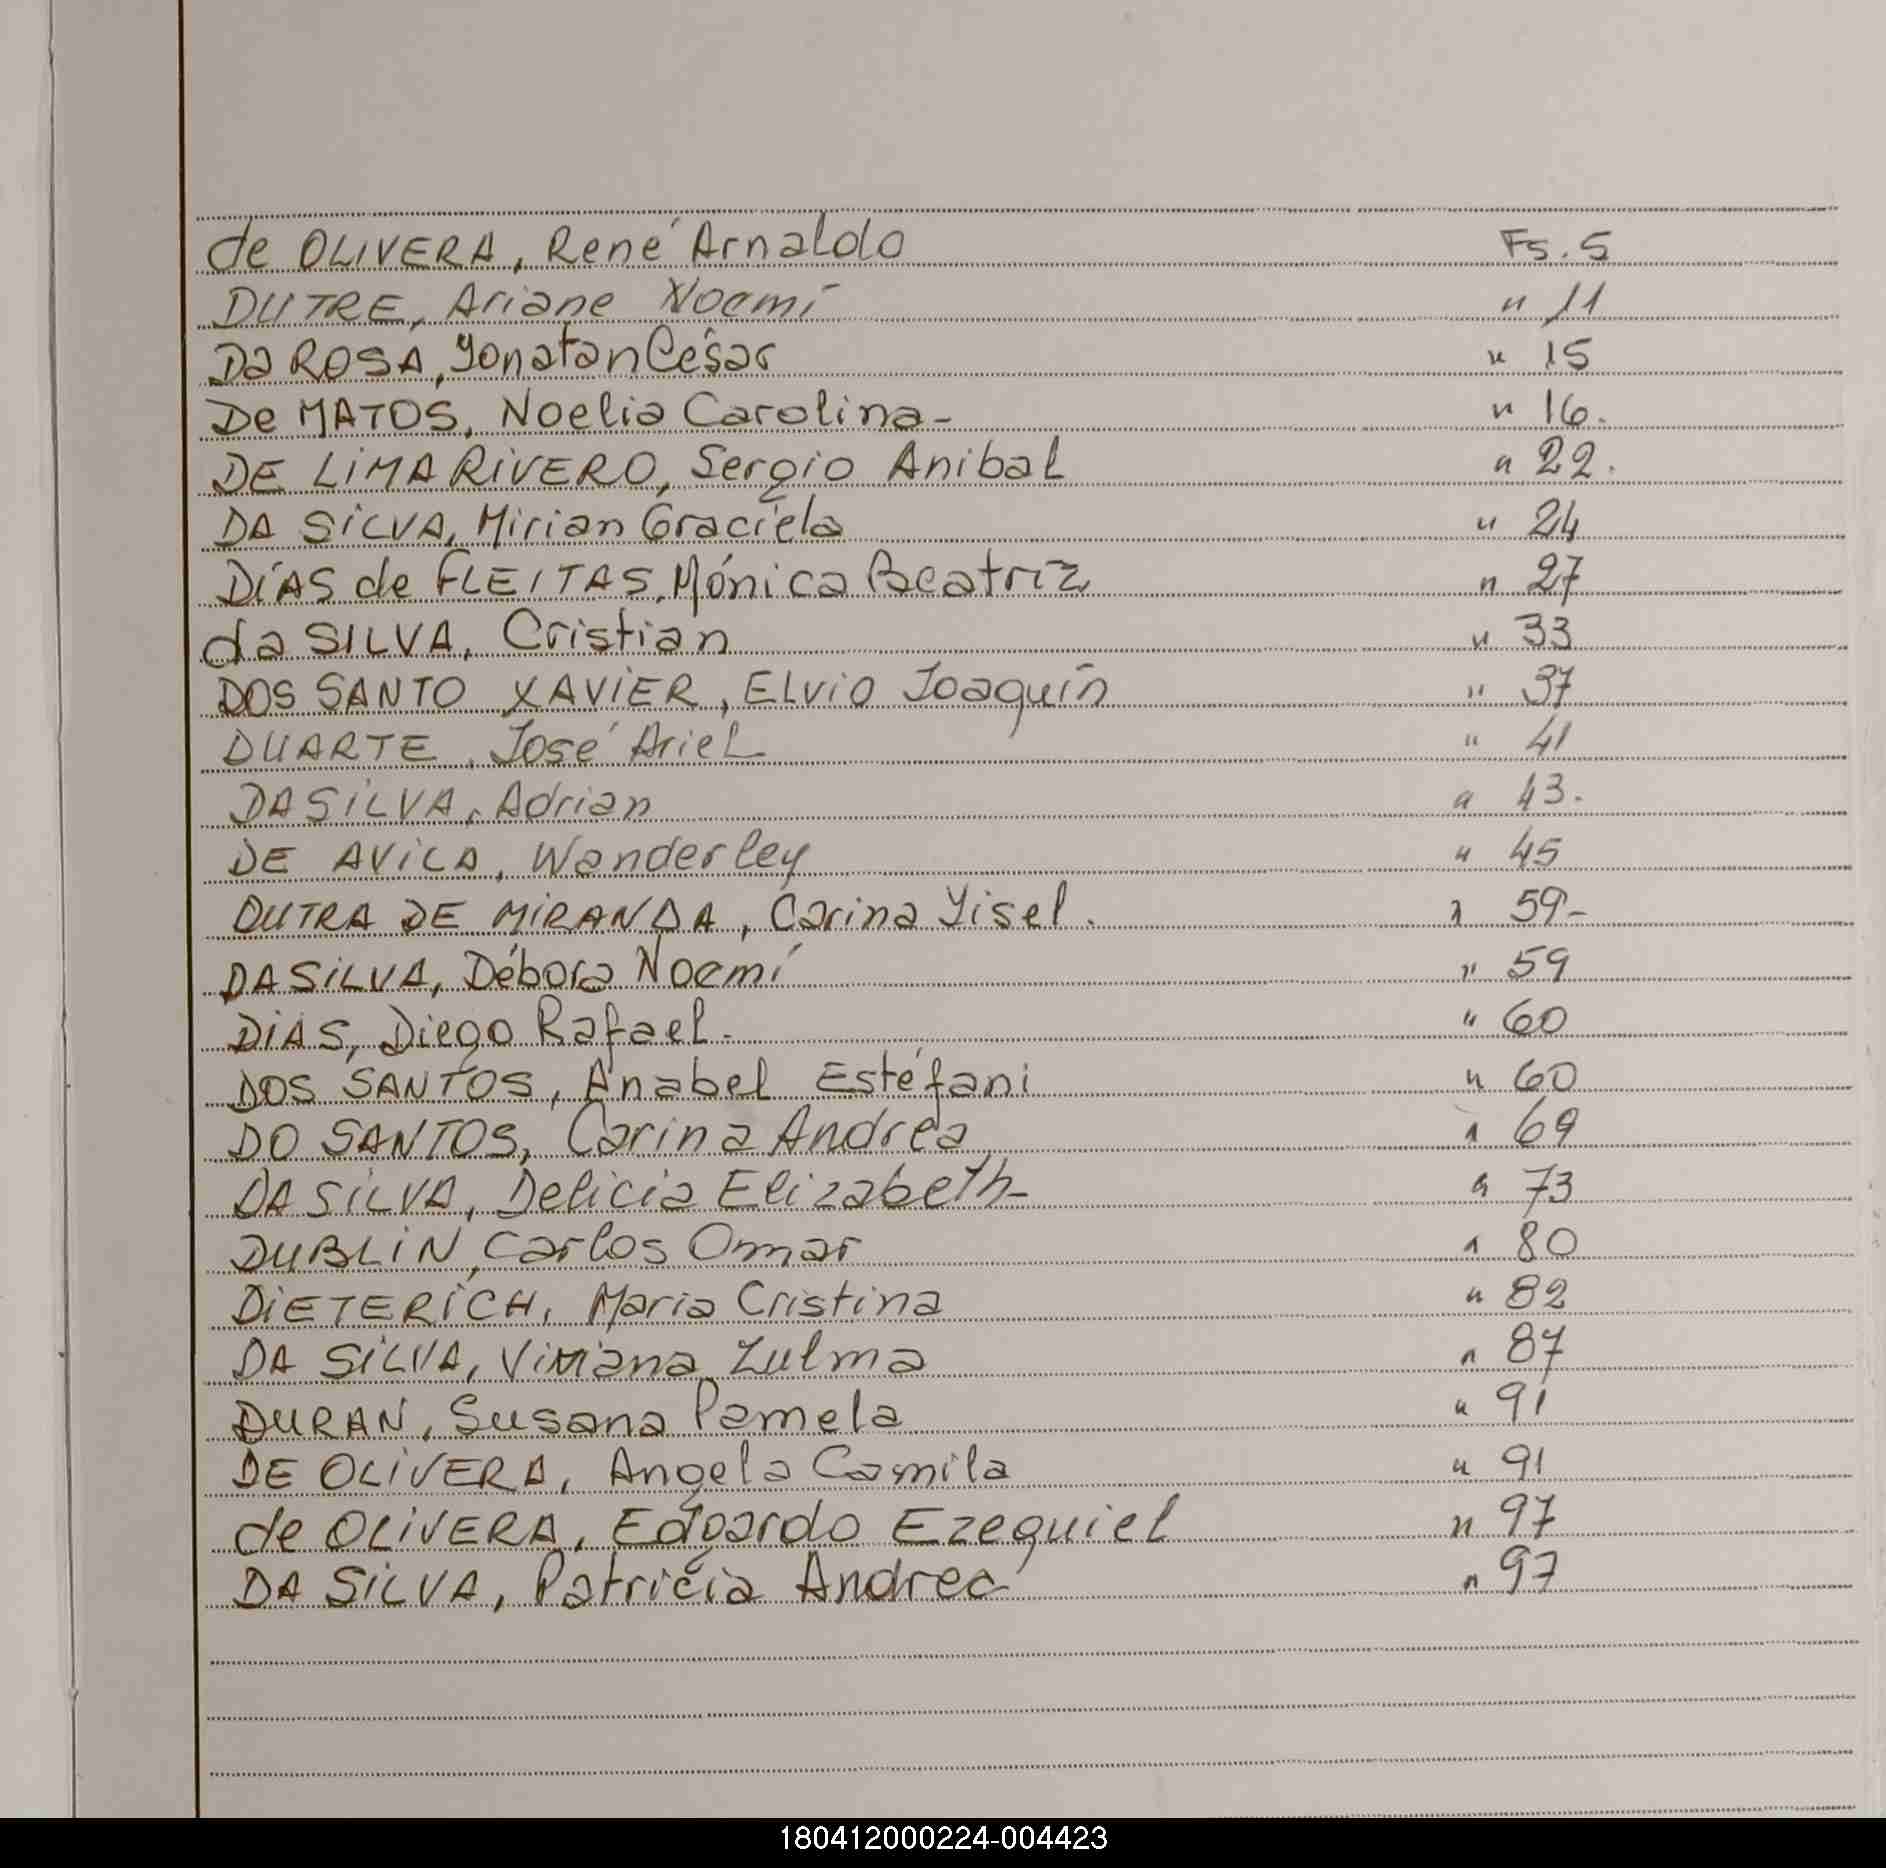 de OLIVERA, René Arnaldo Fs. 5
DUTRE, Ariane Noemí " 11
Da ROSA, Yonatan César " 15
De MATOS, Noelia Carolina- " 16.
DE LiMA RiVERO, Sergio Anibal " 22.
DA SiLVA, Mirian Graciela " 24
DíAS de FLEITAS, Mónica Beatriz " 27
da SILVA, Cristian " 33
DOS SANTO XAViER, ELviO Joaquín " 37
DUARTE, José Ariel " 41
DA SiLVA, Adrian " 43.
DE AViLA, Wanderley " 45
DUTRA DE MiRANDA, Carina Yisel. " 59-
DA SiLVA, Débora Noemí " 59
DiAS, Diego Rafael. " 60
DOS SANTOS, Anabel Estéfani " 60
DO SANTOS, Carina Andrea " 69
DA SiLVA, Delicia Elizabeth- " 73
DUBLiN, Carlos Omar " 80
DiETERiCH, Maria Cristina " 82
DA SiLVA, Viviana Zulma " 87
DURAN, Susana Pamela " 91
DE OLiVERA, Angela Camila " 91
de OLiVERA, Edgardo Ezequiel " 97
DA SiLVA, Patricia Andrea " 97
180412000224-004423